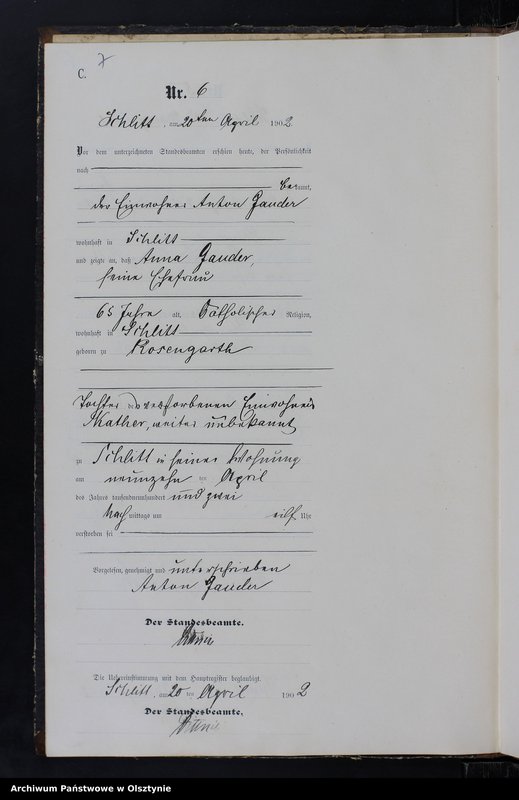 C. 7
Nr. 6
Schlitt, am 20ten April 1902
Vor dem unterzeichneten Standesbeamten erschien heute, der Persönlichkeit
nach
bekannt,
der Einwohner Anton Gauder
wohnhaft in Schlitt
und zeigte an, daß Anna Gauder,
seine Ehefrau
65 Jahre alt, Catholischer Religion,
wohnhaft in Schlitt
geboren zu Rosengarth
Tochter des verstorbenen Einwohners
Mather, weiter unbekannt
zu Schlitt in seiner Wohnung
am neunzehn ten April
des Jahres tausendneunhundert und zwei
Nachmittags um eilf Uhr
verstorben sei
Vorgelesen, genehmigt und unterschrieben
Anton Gauder
Der Standesbeamte.
Die Uebereinstimmung mit dem Hauptregister beglaubigt.
Schlitt, am 20 ten April 1902
Der Standesbeamte.
Archiwum Państwowe w Olsztynie